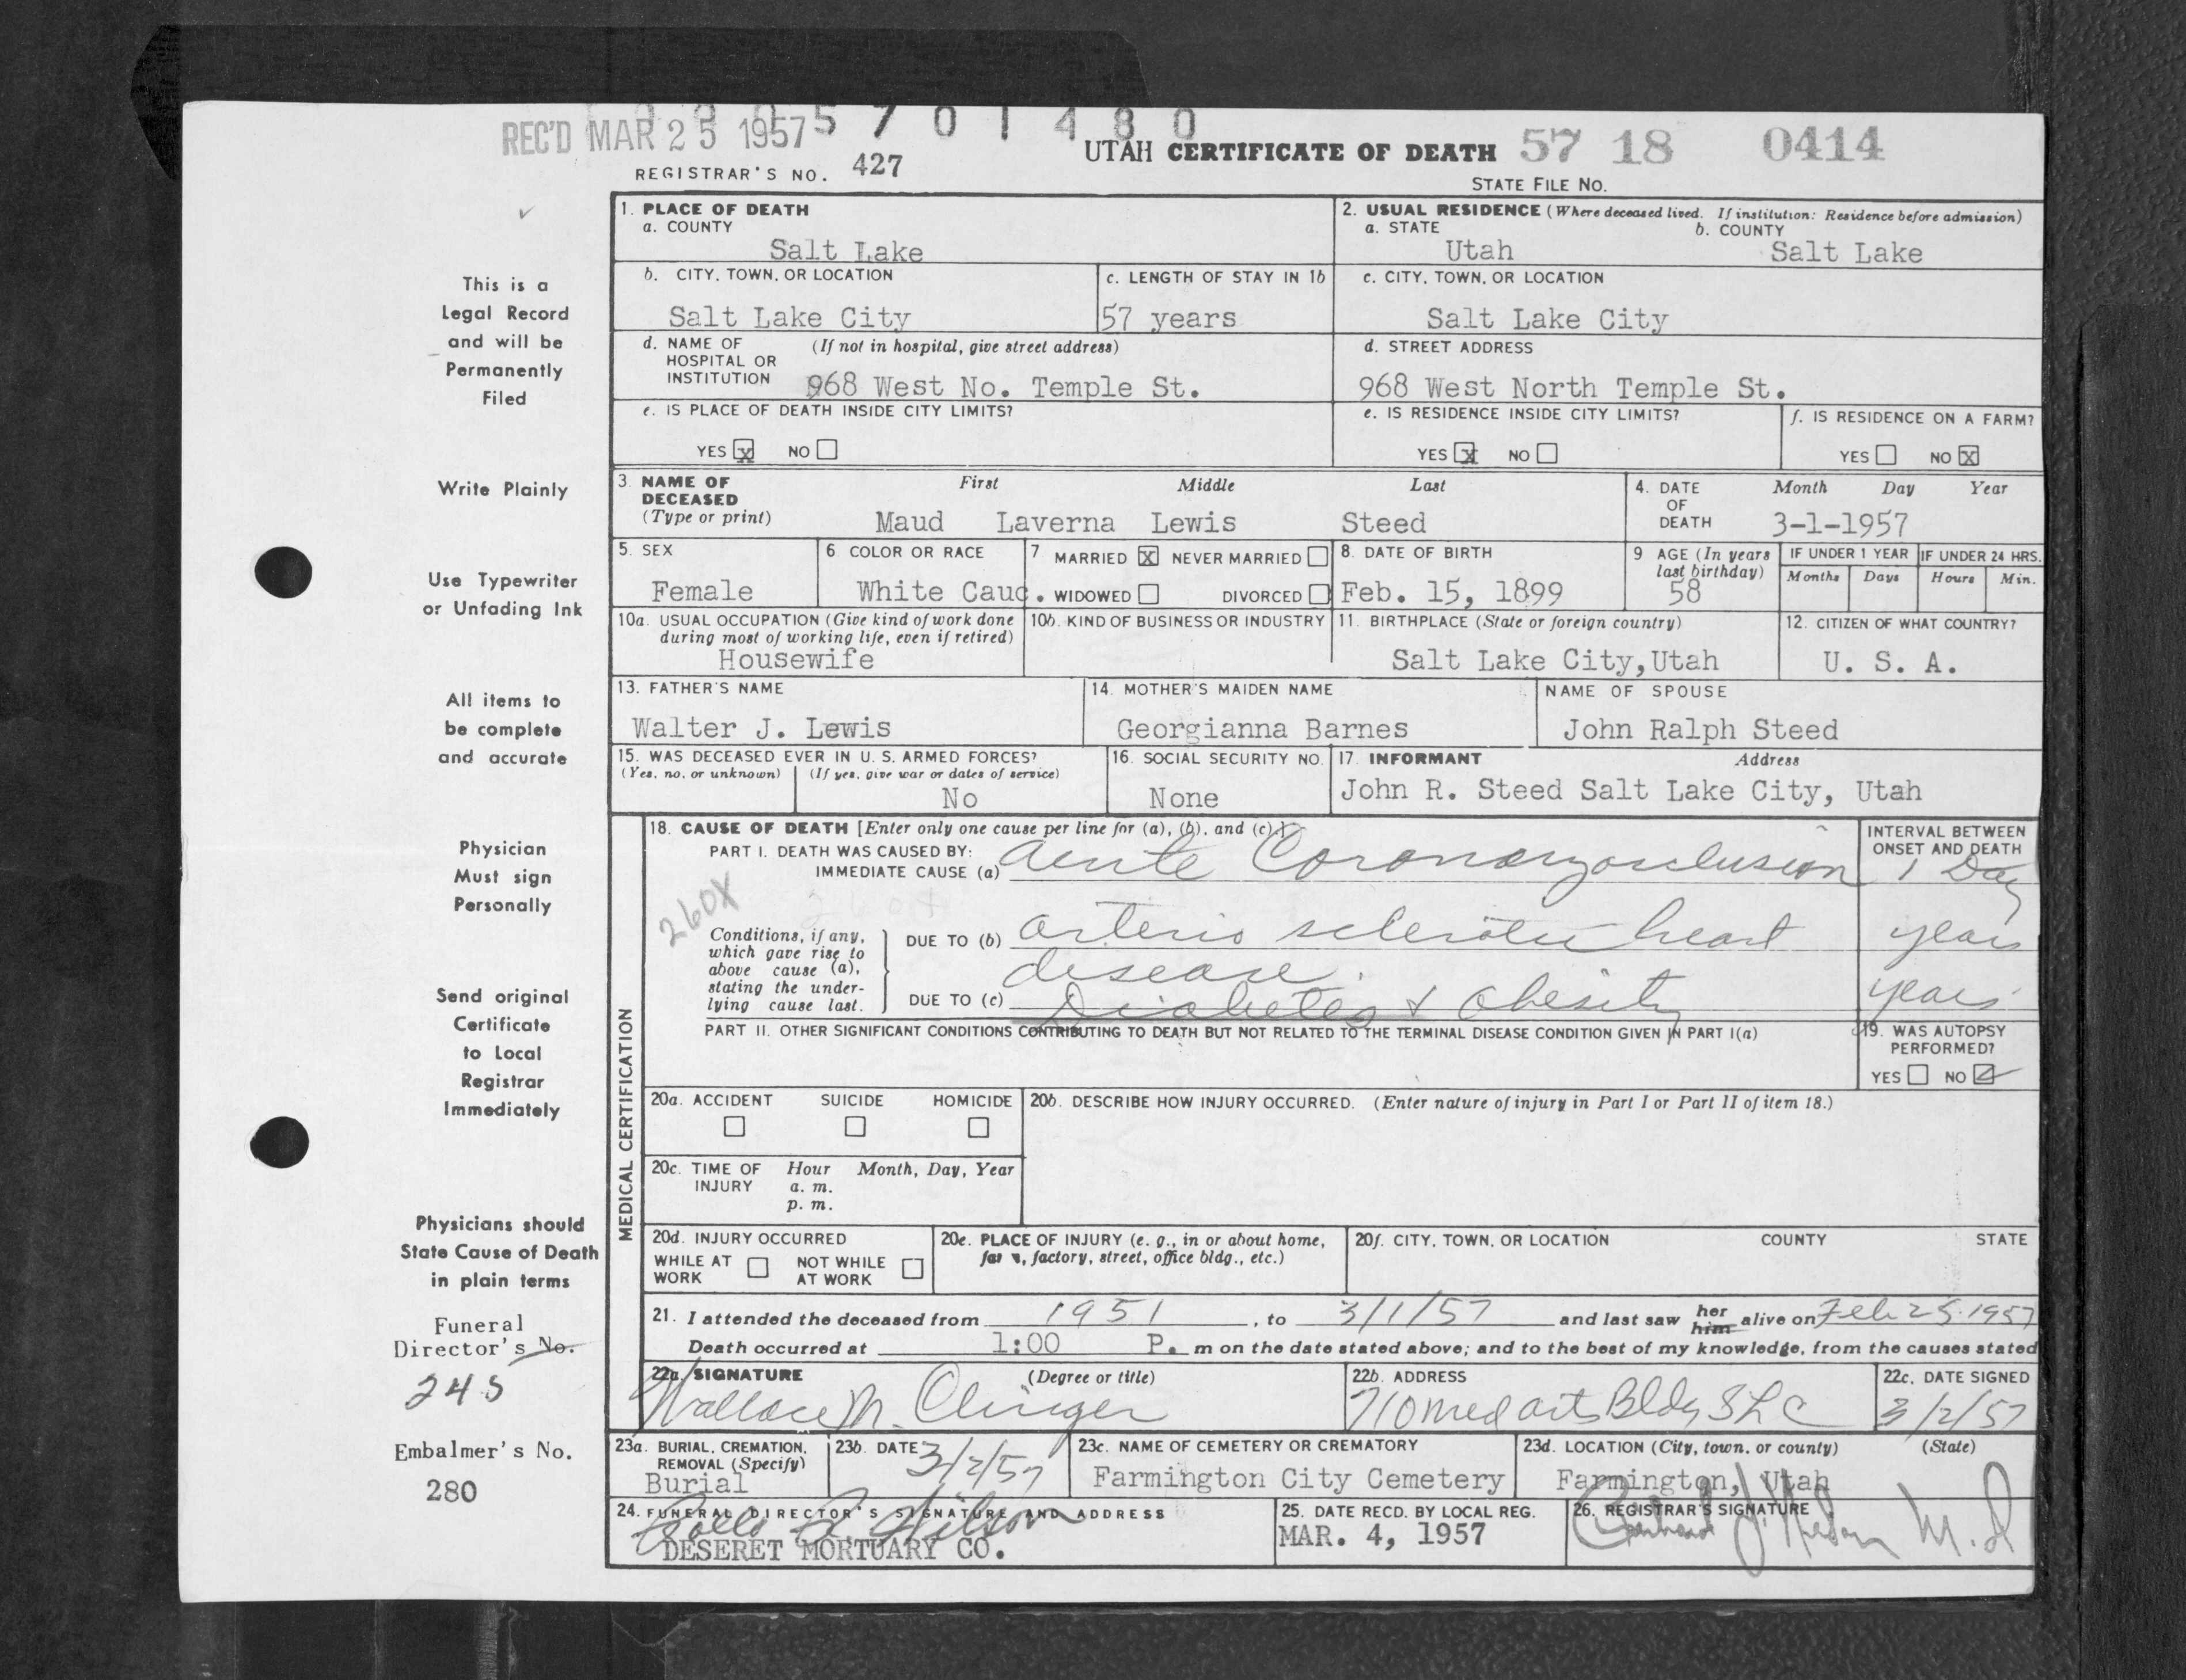 REC'D MAR 25 1957 5 7 0 1 4 8 0
UTAH CERTIFICATE OF DEATH 57 18 0414
REGISTRAR'S NO. 427
STATE FILE NO.
This is a
Legal Record
and will be
Permanently
Filed
Write Plainly
Use Typewriter
or Unfading Ink
All items to
be complete
and accurate
Physician
Must sign
Personally
Send original
Certificate
to Local
Registrar
Immediately
Physicians should
State Cause of Death
in plain terms
Funeral
Director's No.
245
Embalmer's No.
280
1. PLACE OF DEATH
a. COUNTY
Salt Lake
2. USUAL RESIDENCE (Where deceased lived. If institution: Residence before admission)
a. STATE b. COUNTY
Utah Salt Lake
b. CITY, TOWN, OR LOCATION
Salt Lake City
c. LENGTH OF STAY IN 1b
57 years
c. CITY, TOWN, OR LOCATION
Salt Lake City
d. NAME OF (If not in hospital, give street address)
HOSPITAL OR
INSTITUTION 968 West No. Temple St.
d. STREET ADDRESS
968 West North Temple St.
e. IS PLACE OF DEATH INSIDE CITY LIMITS?
YES X NO
e. IS RESIDENCE INSIDE CITY LIMITS?
YES X NO
f. IS RESIDENCE ON A FARM?
YES NO X
3. NAME OF First Middle Last
DECEASED
(Type or print) Maud Laverna Lewis Steed
4. DATE Month Day Year
OF
DEATH 3-1-1957
5. SEX
Female
6 COLOR OR RACE
White Cauc.
7. MARRIED X NEVER MARRIED
WIDOWED DIVORCED
8. DATE OF BIRTH
Feb. 15, 1899
9 AGE (In years
last birthday)
58
IF UNDER 1 YEAR IF UNDER 24 HRS.
Months Days Hours Min.
10a. USUAL OCCUPATION (Give kind of work done
during most of working life, even if retired)
Housewife
10b. KIND OF BUSINESS OR INDUSTRY
11. BIRTHPLACE (State or foreign country)
Salt Lake City, Utah
12. CITIZEN OF WHAT COUNTRY?
U. S. A.
13. FATHER'S NAME
Walter J. Lewis
14. MOTHER'S MAIDEN NAME
Georgianna Barnes
NAME OF SPOUSE
John Ralph Steed
15. WAS DECEASED EVER IN U. S. ARMED FORCES?
(Yes, no, or unknown) (If yes, give war or dates of service)
No
16. SOCIAL SECURITY NO.
None
17. INFORMANT Address
John R. Steed Salt Lake City, Utah
MEDICAL CERTIFICATION
18. CAUSE OF DEATH [Enter only one cause per line for (a), (b), and (c).]
INTERVAL BETWEEN
ONSET AND DEATH
PART I. DEATH WAS CAUSED BY:
IMMEDIATE CAUSE (a) Acute Coronary occlusion 1 Day
260X
Conditions, if any,
which gave rise to
above cause (a),
stating the under-
lying cause last.
DUE TO (b) arterio sclerotic heart years
disease.
DUE TO (c) Diabetes & Obesity years
PART II. OTHER SIGNIFICANT CONDITIONS CONTRIBUTING TO DEATH BUT NOT RELATED TO THE TERMINAL DISEASE CONDITION GIVEN IN PART I(a)
19. WAS AUTOPSY
PERFORMED?
YES NO
20a. ACCIDENT SUICIDE HOMICIDE
20b. DESCRIBE HOW INJURY OCCURRED. (Enter nature of injury in Part I or Part II of item 18.)
20c. TIME OF Hour Month, Day, Year
INJURY a. m.
p. m.
20d. INJURY OCCURRED
WHILE AT NOT WHILE
WORK AT WORK
20e. PLACE OF INJURY (e. g., in or about home,
farm, factory, street, office bldg., etc.)
20f. CITY, TOWN, OR LOCATION COUNTY STATE
21. I attended the deceased from 1951, to 3/1/57 and last saw her him alive on Feb 25 1957
Death occurred at 1:00 P. m on the date stated above; and to the best of my knowledge, from the causes stated
22a. SIGNATURE (Degree or title)
Wallace M. Clinger
22b. ADDRESS
710 Med Arts Bldg SLC
22c. DATE SIGNED
3/2/57
23a. BURIAL, CREMATION,
REMOVAL (Specify)
Burial
23b. DATE
3/2/57
23c. NAME OF CEMETERY OR CREMATORY
Farmington City Cemetery
23d. LOCATION (City, town, or county) (State)
Farmington, Utah
24. FUNERAL DIRECTOR'S SIGNATURE AND ADDRESS
DESERET MORTUARY CO.
25. DATE RECD. BY LOCAL REG.
MAR. 4, 1957
26. REGISTRAR'S SIGNATURE
M.D